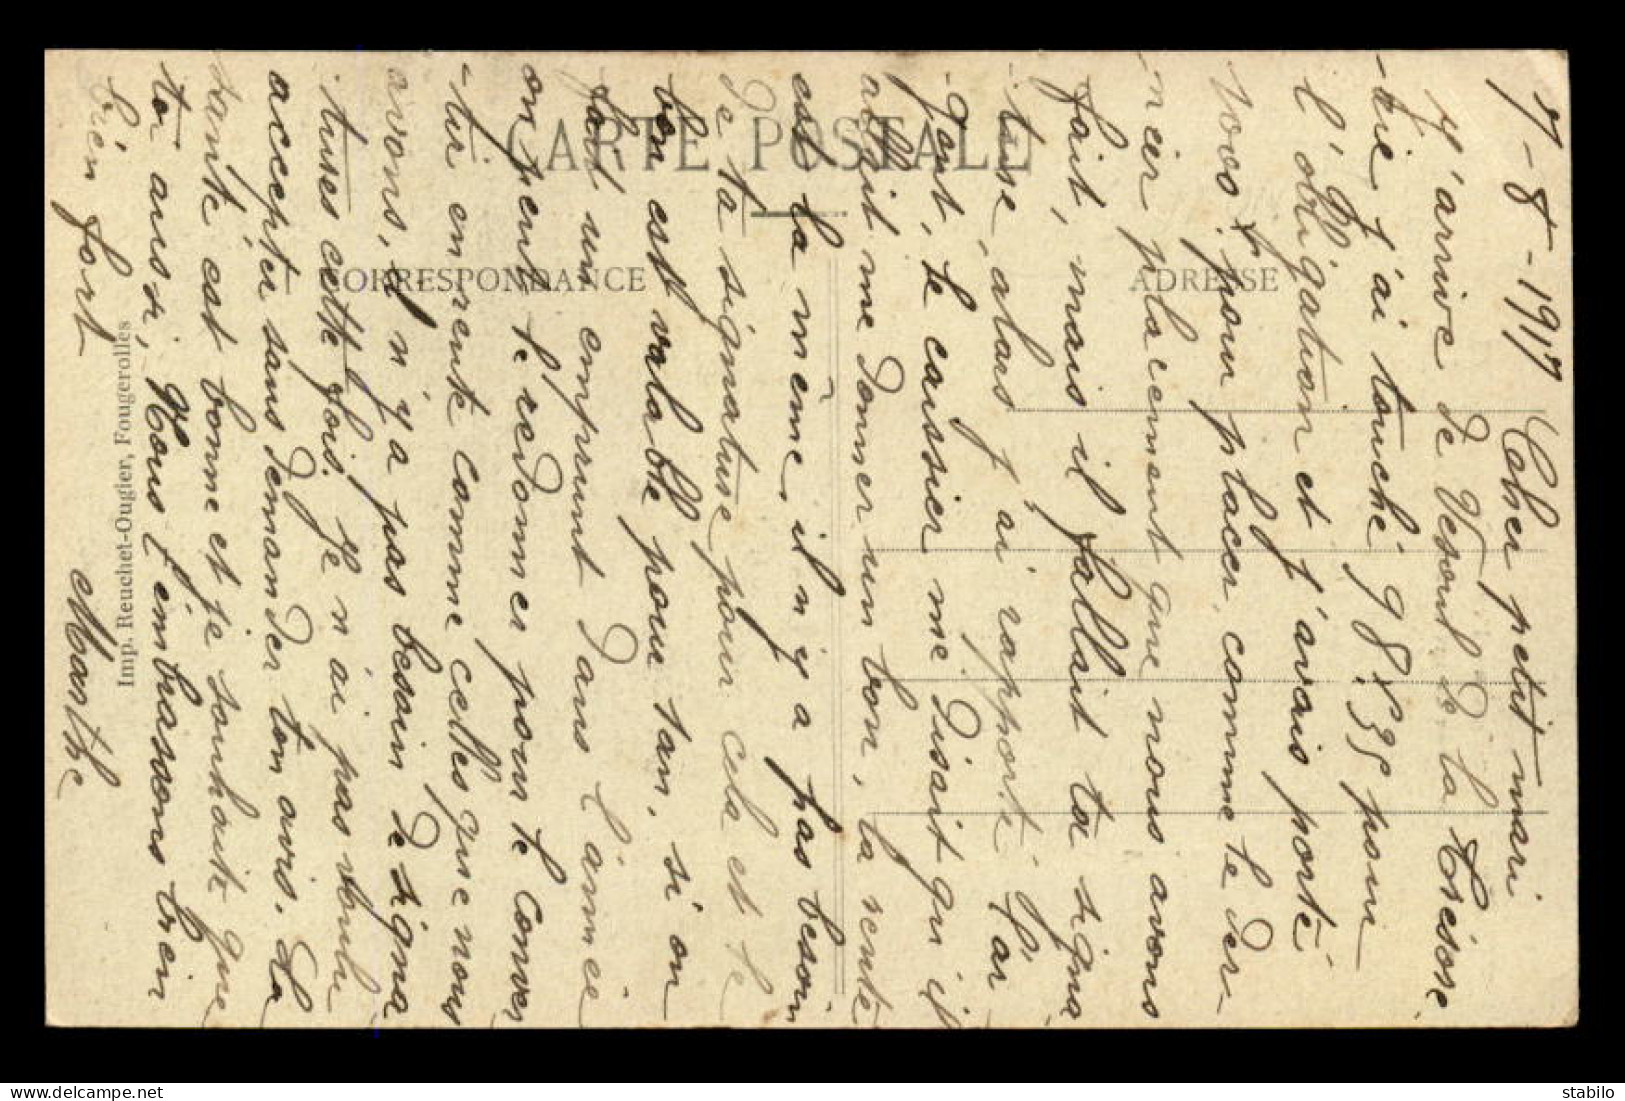 7-8-1917
Cher petit mari
J'arrive de Vesoul de la trésore
-rie j'ai touché 98f35 pour
l'obligation et j'avais porté
1000f pour placer comme le der-
-nier placement que nous avons
fait, mais il fallait ta signa
-ture, alors j'ai rapporté l'ar
-gent, le caissier me disait qu'il
allait me donner un bon, la rente
est la même, il n'y a pas besoin
de ta signature pour cela et le
bon est valable pour 1an, si on
fait un emprunt dans l'année
on peut le redonner pour le conver
-tir en rente comme celles que nous
avons, il n'y a pas besoin de signa
-tures cette fois. Je n'ai pas voulu
accepter sans demander ton avis. La
santé est bonne et je souhaite que
toi aussi, Nous t'embrassons bien
bien fort
Marthe
CARTE POSTALE
CORRESPONDANCE
ADRESSE
Imp. Reuchet-Ougier, Fougerolles
stabilo